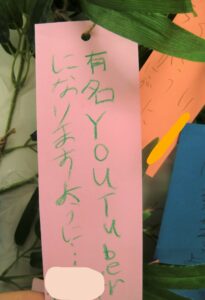 有名YOUTUber
になりますように…